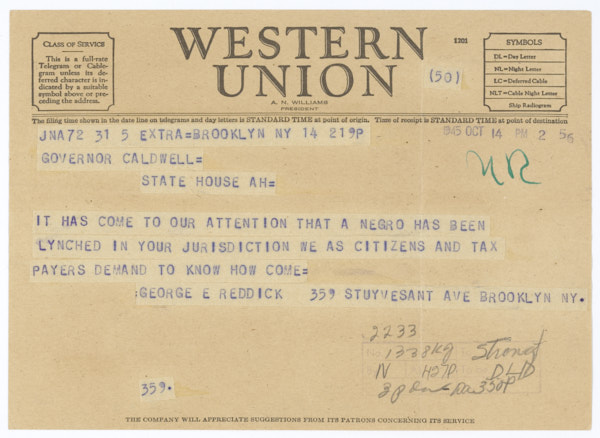 CLASS OF SERVICE
This is a full-rate
Telegram or Cable-
gram unless its de-
ferred character is in-
dicated by a suitable
symbol above or pre-
ceding the address.
WESTERN
UNION
A. N. WILLIAMS
PRESIDENT
1201
(50)
SYMBOLS
DL=Day Letter
NL=Night Letter
LC=Deferred Cable
NLT=Cable Night Letter
Ship Radiogram
The filing time shown in the date line on telegrams and day letters is STANDARD TIME at point of origin. Time of receipt is STANDARD TIME at point of destination
JNA72 31 5 EXTRA=BROOKLYN NY 14 219P
1945 OCT 14 PM 2 56
GOVERNOR CALDWELL=
STATE HOUSE AH=
NR
IT HAS COME TO OUR ATTENTION THAT A NEGRO HAS BEEN
LYNCHED IN YOUR JURISDICTION WE AS CITIZENS AND TAX
PAYERS DEMAND TO KNOW HOW COME=
:GEORGE E REDDICK 359 STUYVESANT AVE BROOKLYN NY.
2233
N 427P DLD
330P
359.
THE COMPANY WILL APPRECIATE SUGGESTIONS FROM ITS PATRONS CONCERNING ITS SERVICE